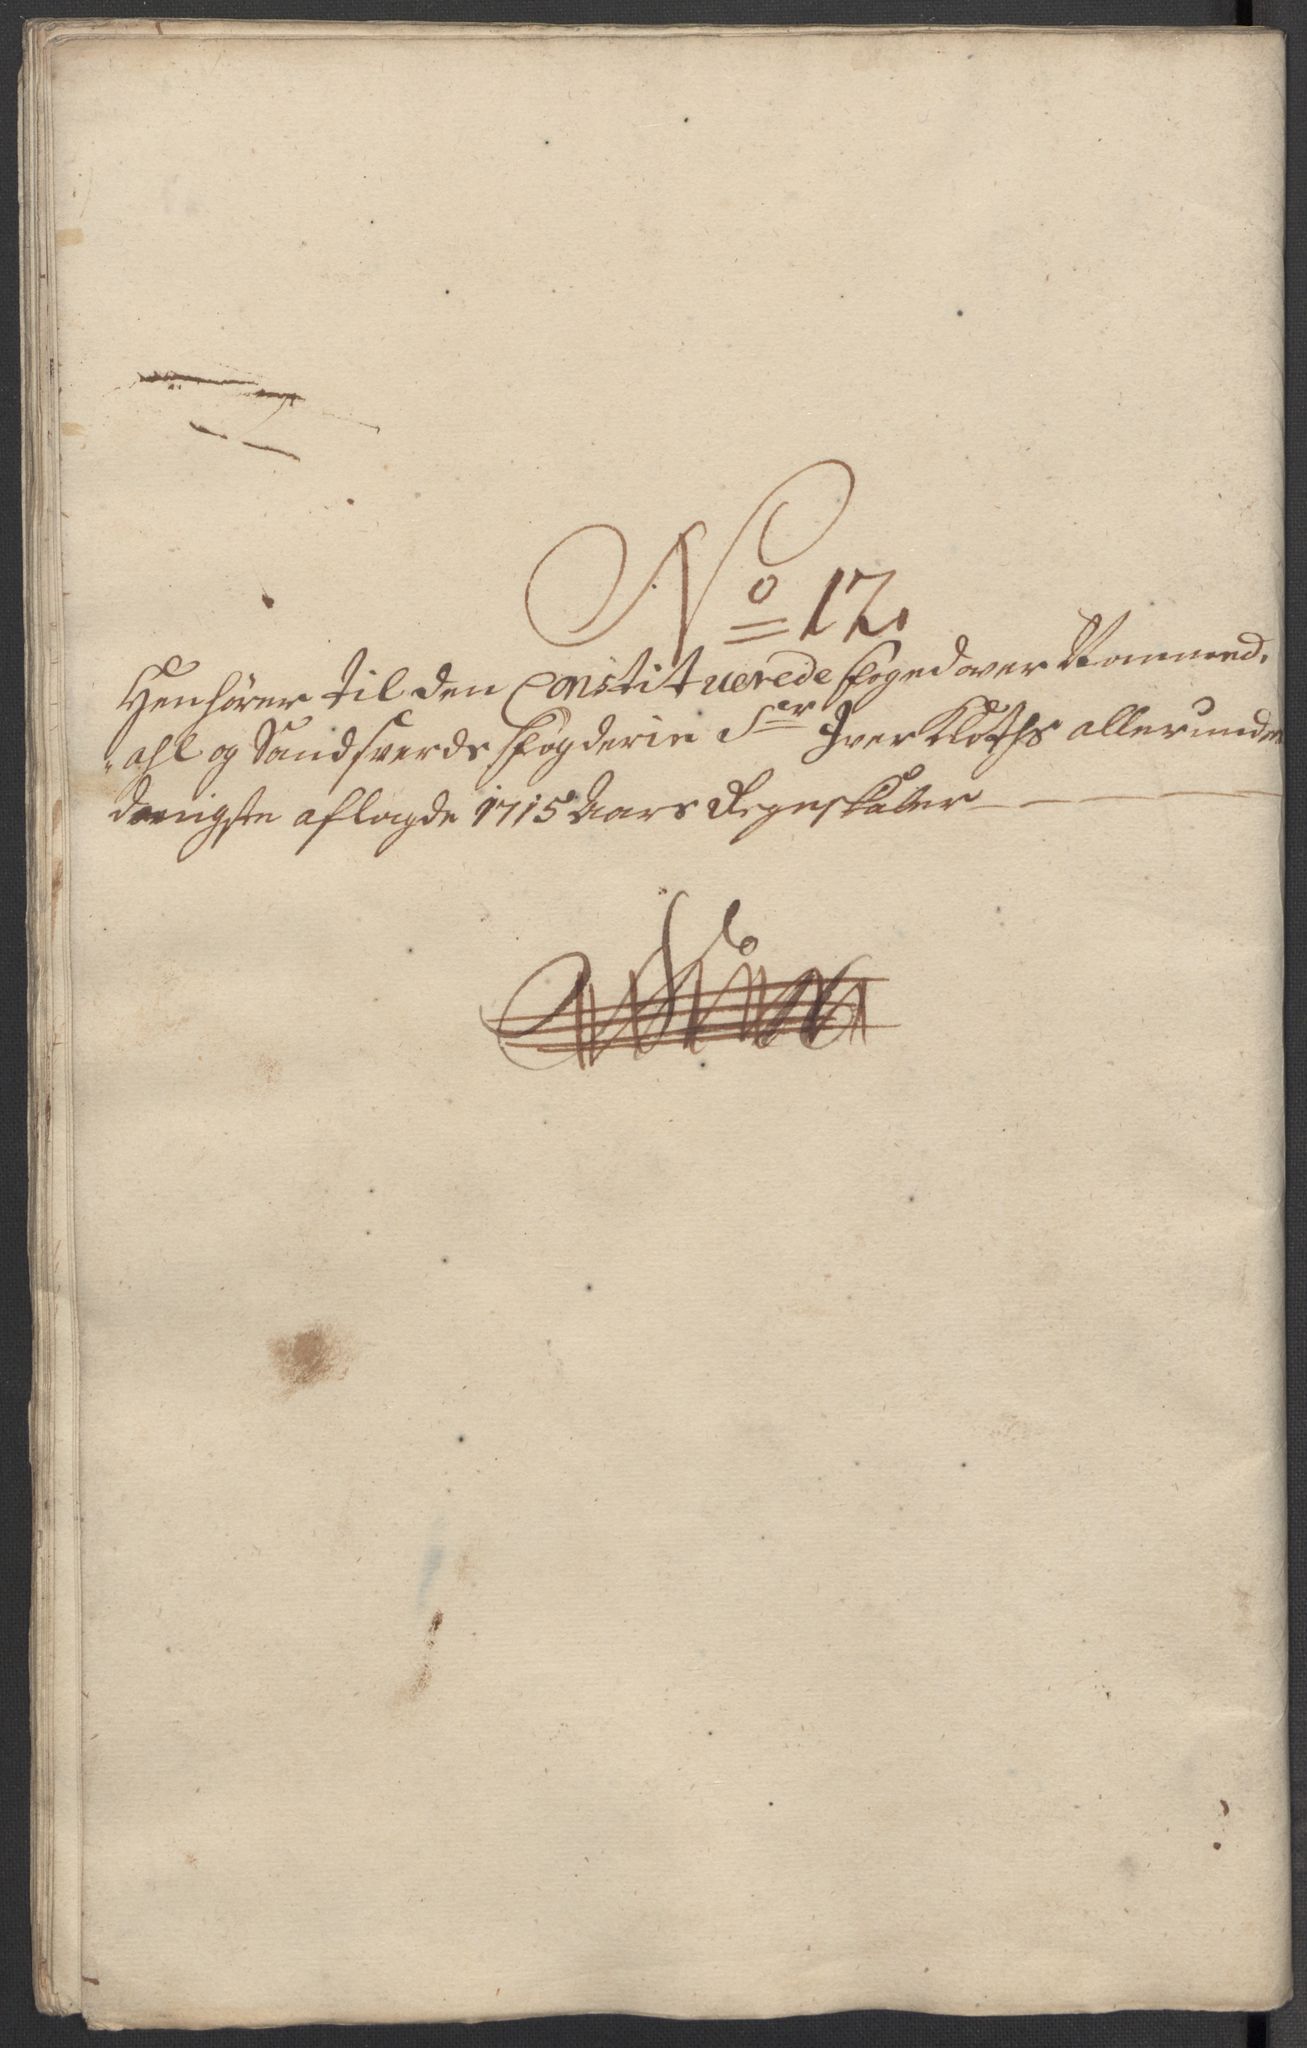 No 12.
Henhører til den Constituerede foged over Nommed,
ahl og Sandsverds fogderie Sr Iver Kloths allerunder
danigste aflagde 1715 Aars Regnskaber